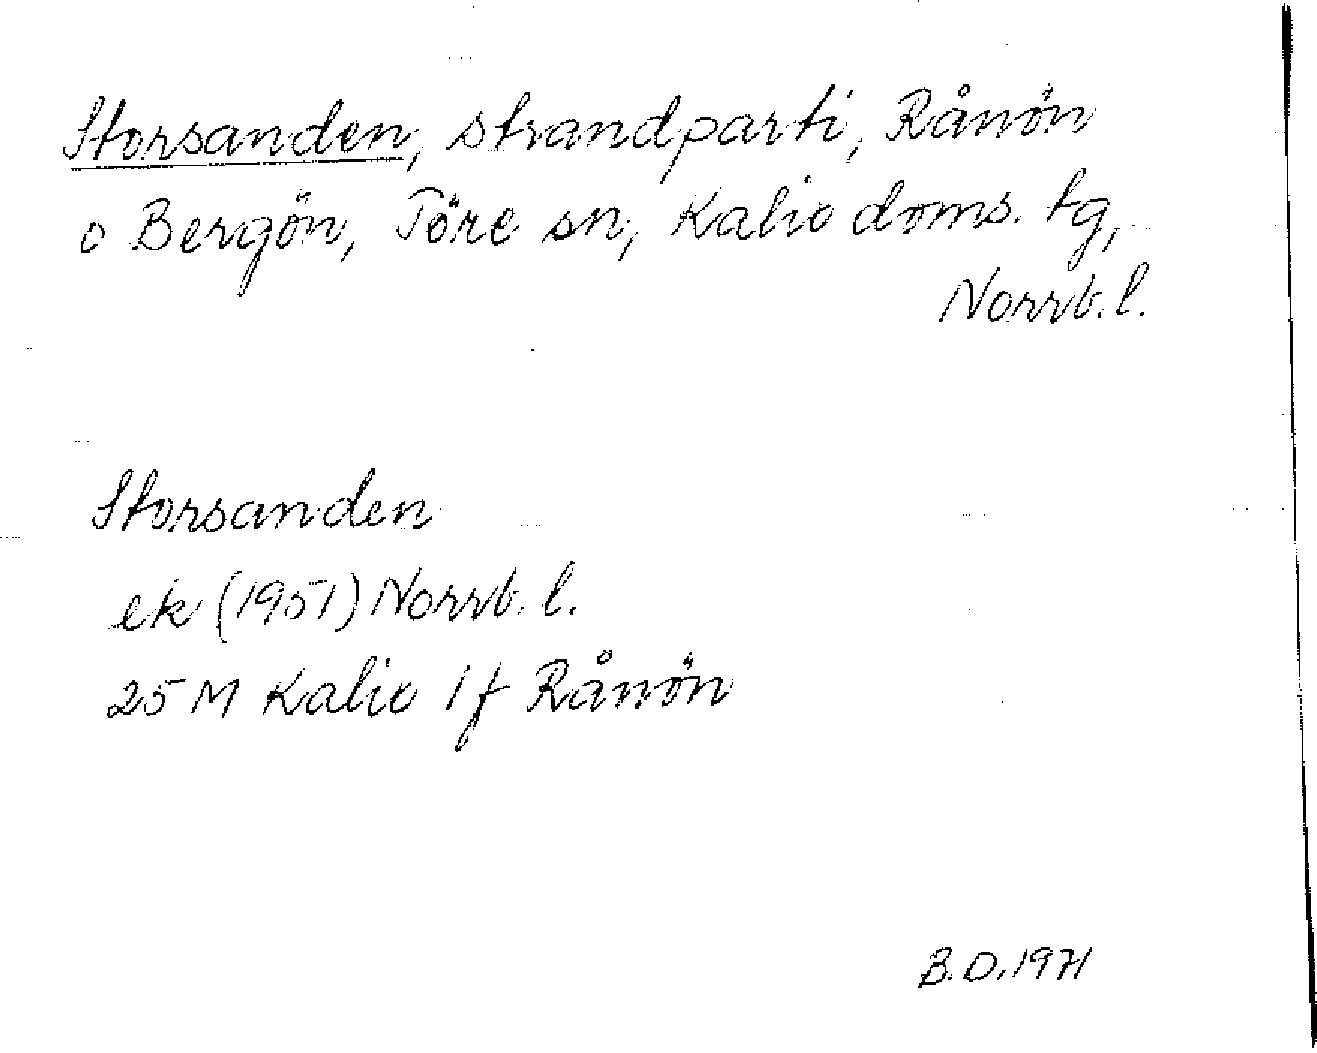 Storsanden, strandparti, Rånön
o Bergön, Töre sn, Kalix doms. tg,
Norrb. l.
Storsanden
ek (1951) Norrb. l.
25 M Kalix 1 f Rånön
B.D. 1971